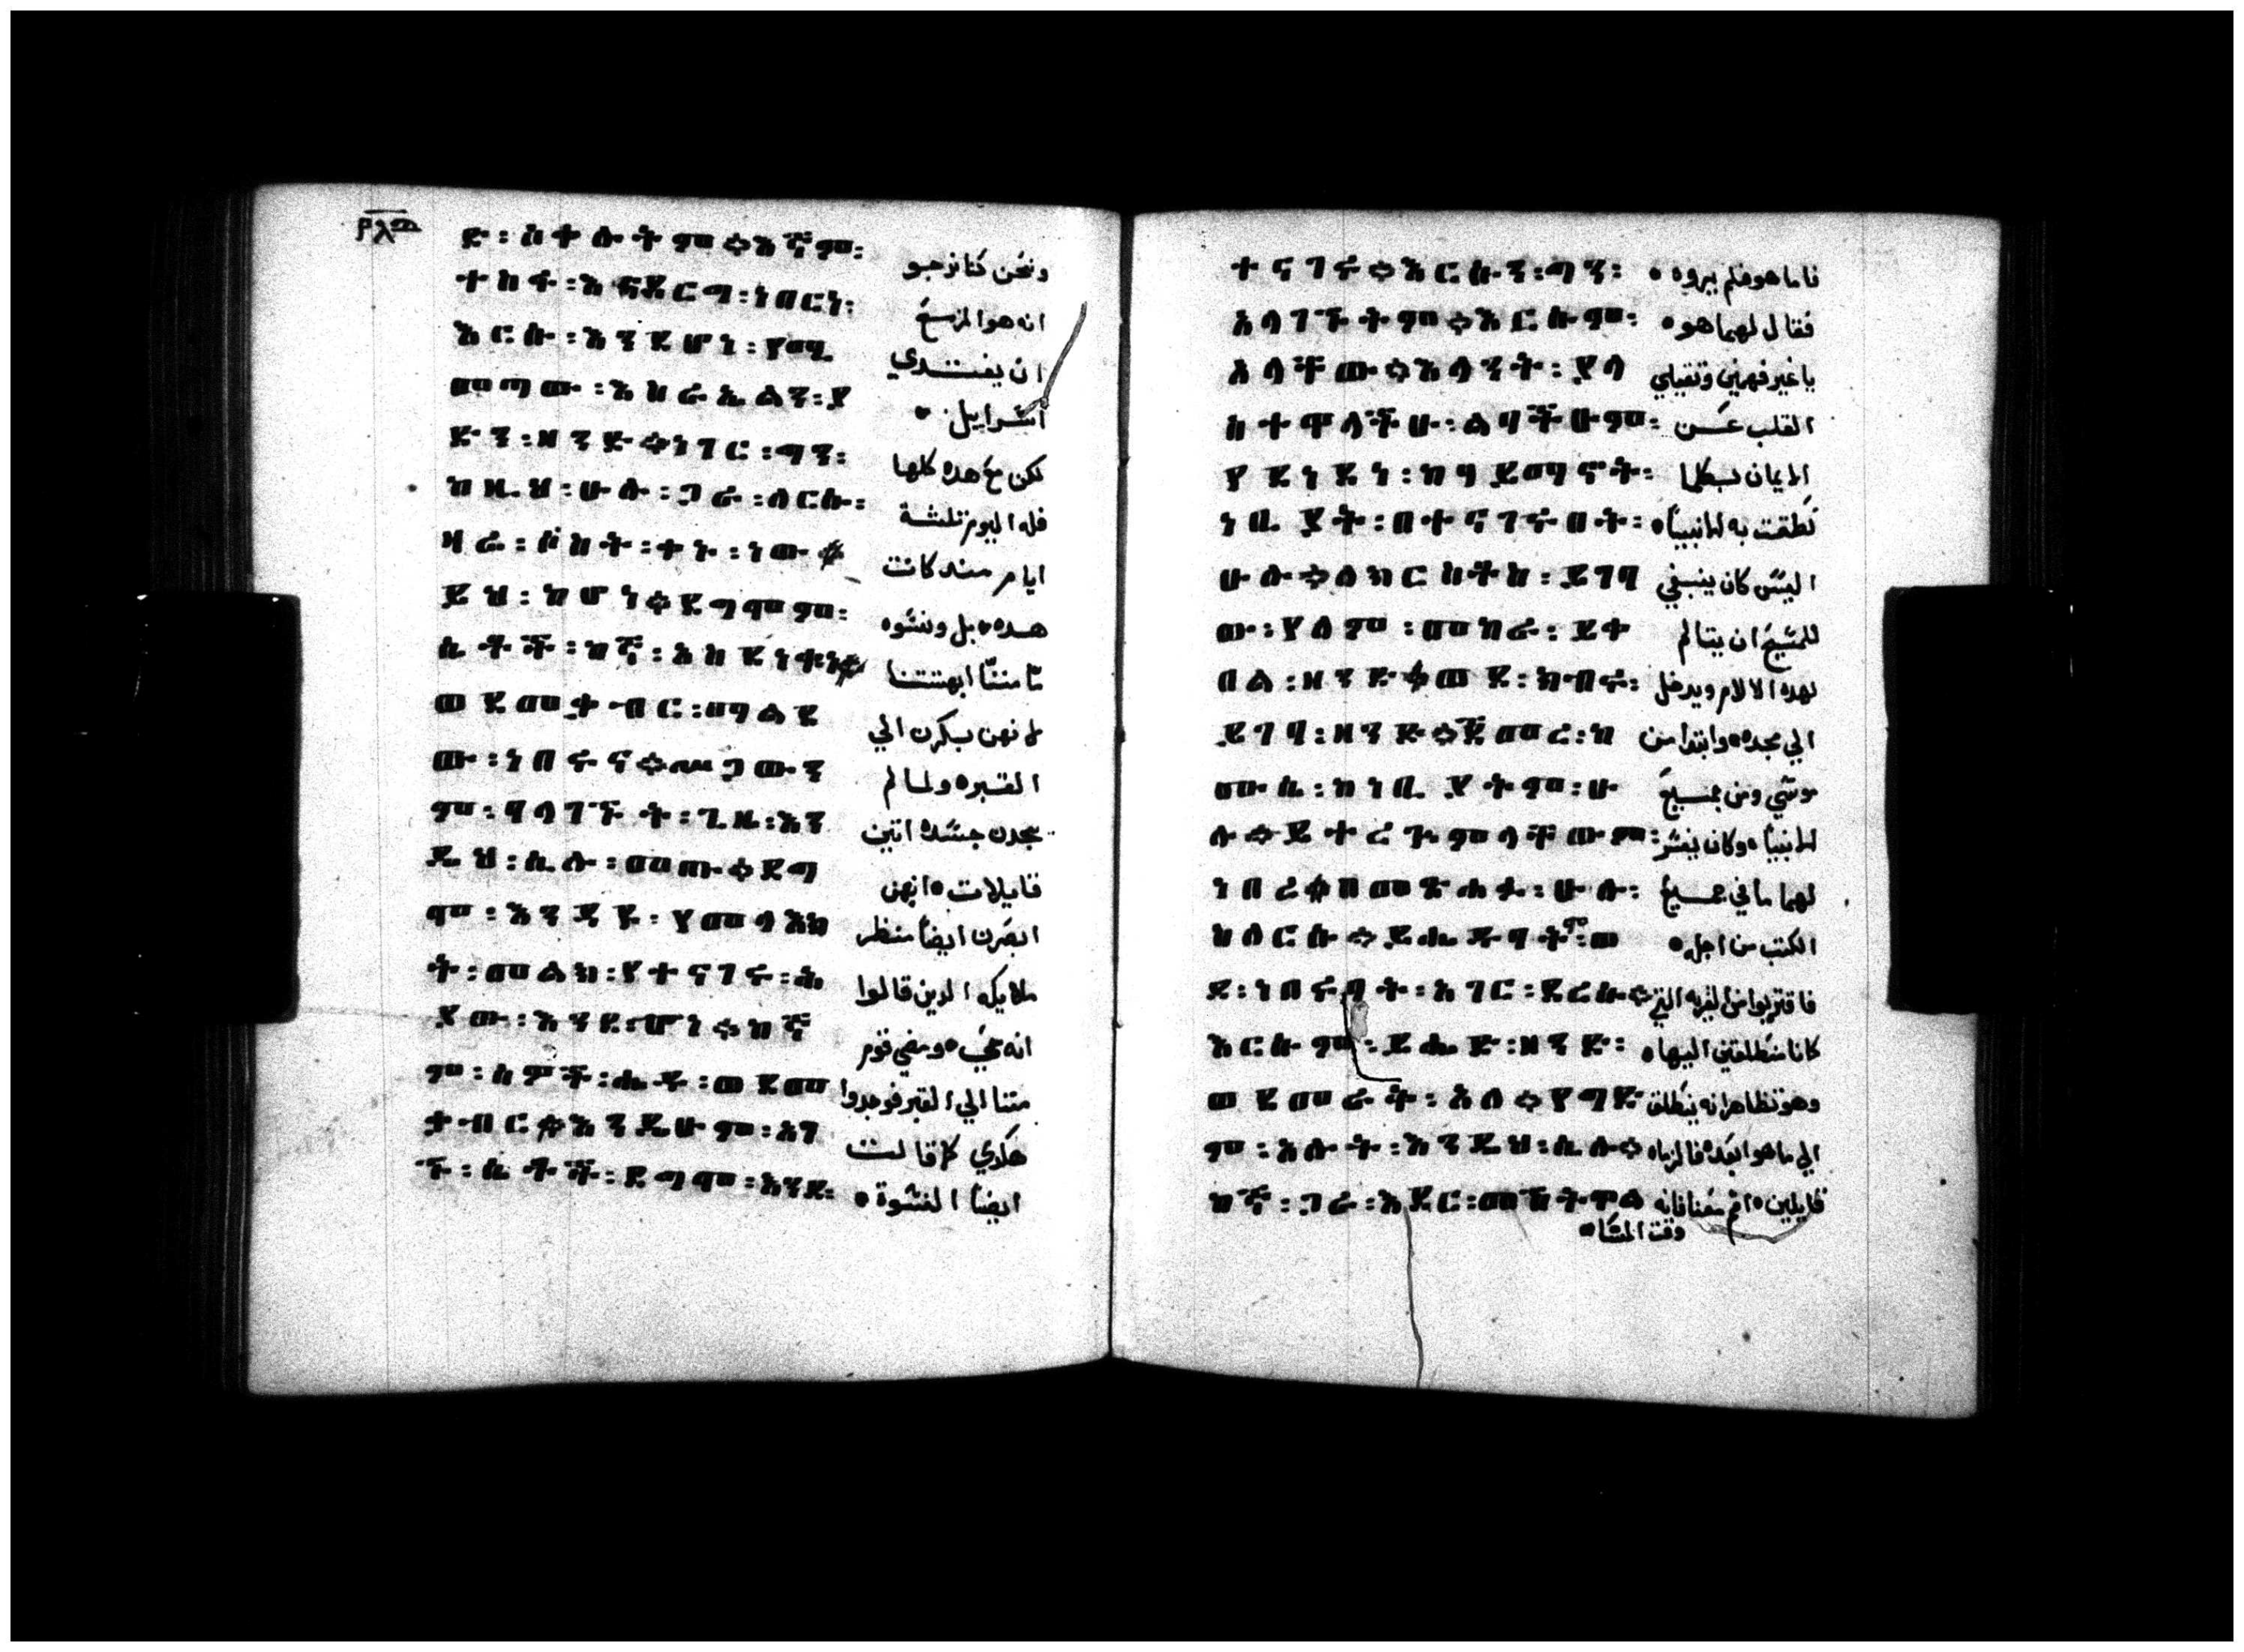 ዱ፡ሰቀሉትም።እኛም፡ ونحن كنا نرجو
ተስፋ፡እናደርግ፡ነበርነ፡ انه هوالمزمع
እርሱ፡እንደሆነ፡የሚ ان يفتدي
መጣው፡እስራኤልን፡ያ اسراييل
ድን፡ዘንድ።ነገር፡ግን፡ لكن مع هده كلها
ከዚህ፡ሁሉ፡ጋራ፡ለርሱ፡ فله اليوم تلتة
ዛሬ፡ሶስት፡ቀኑ፡ነው። ايام مند كانت
ይህ፡ከሆነ።ደግሞም፡ هده بل ونسوه
ሴቶች፡ከኛ፡አስደነቁነ። مننا ابهتتنا
ወደመቃብር፡ማልደ لانهن بكرن الي
ው፡ነበሩና።ሥጋውን القبر ولما لم
ም፡ባላገኙት፡ጊዜ፡እን يجدن جسده اتين
ዲህ፡ሲሉ፡መጡ።ደግ قايلات انهن
ሞ፡እንደያ፡የመላእክ ابصرن ايضا منظر
ት፡መልክ፡የተናገሩ፡ሕ ملايكه الدين قالوا
ያው፡እንደ፡ሆነ።ከኛ انه حي ومضي قوم
ም፡ሰዎች፡ሔዱ፡ወደመ مننا الي القبر فوجدوا
ቃብር።እንዲሁም፡አገ هكدي كما قالت
ኙ፡ሴቶች፡ደግሞ፡እንደ፡ ايضا النسوة
ተናገሩ።እርሱን፡ግን፡ فاما هو فلم يروه
አላገኙትም።እርሱም፡ فقال لهما هو
አላቸው።እላንት፡ያል يا غير فهمين وتقيلي
ስተዋላችሁ፡ልባችሁም፡ القلب عن
የደነደነ፡ከማመኖት፡ الايمان بكلما
ነቢያት፡በተናገሩበት፡ نطقت به الانبيا
ሁሉ።ለክርስቶስ፡ይገባ اليس كان ينبغي
ው፡የለም፡መከራ፡ይቀ للمسيح ان يتالم
በል፡ዘንድ።ወደ፡ክብሩ፡ لهده الالام ويدخل
ይገባ፡ዘንድ።ጀመረ፡ከ الي مجده وابتدا من
ሙሴ፡ከነቢያትም፡ሁ موسي ومن جميع
ሉ።ይተረጉምላቸውም፡ الانبيا وكان يفسر
ነበረ።ከመጻሕፉ፡ሁሉ፡ لهما ما في جميع
ስለርሱ።ይሔዱባትም፡ወ الكتب من اجله
ደ፡ነበሩባት፡አገር፡ደረሱ። فاقتربوا من القريه التي
እርሱም፡ይሔድ፡ዘንድ፡ كانا منطلقين اليها
ወደመራት፡አለ።የግድ وهو تظاهر انه ينطلق
ም፡አሉት፡እንዲህ፡ሲሉ። الي ما هو ابعد فالزماه
ከኛ፡ጋራ፡እደር፡መሽትዋል قايلين اقم معنا فانه
وقت المسا